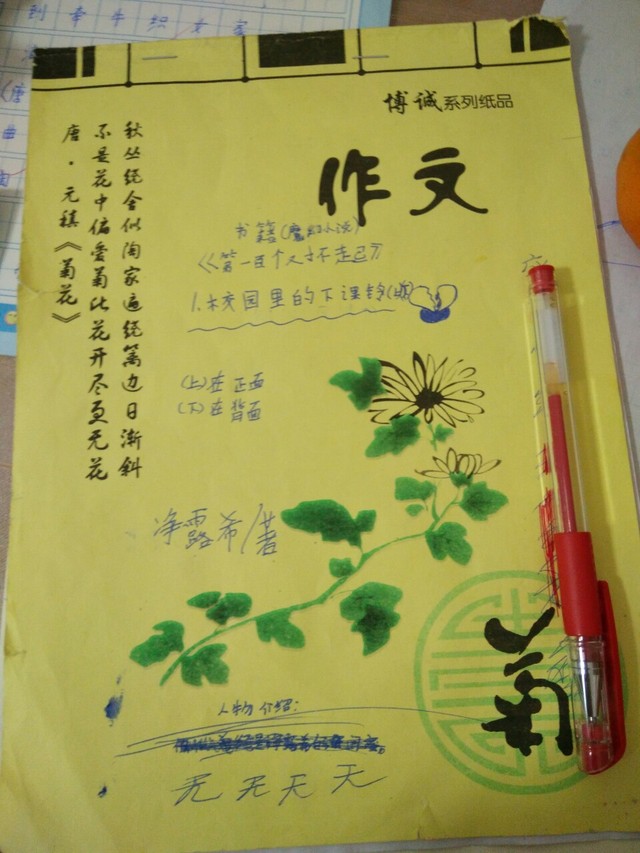 到牵牛织女家
博诚系列纸品
作文
秋丛绕舍似陶家遍绕篱边日渐斜
不是花中偏爱菊此花开尽更无花
唐·元稹《菊花》
书籍(魔幻小说)
《第一百个人才不走
1.校园里的下课铃
(上)在正面
(下)在背面
净露希/著
菊
人物介绍:
无无天天